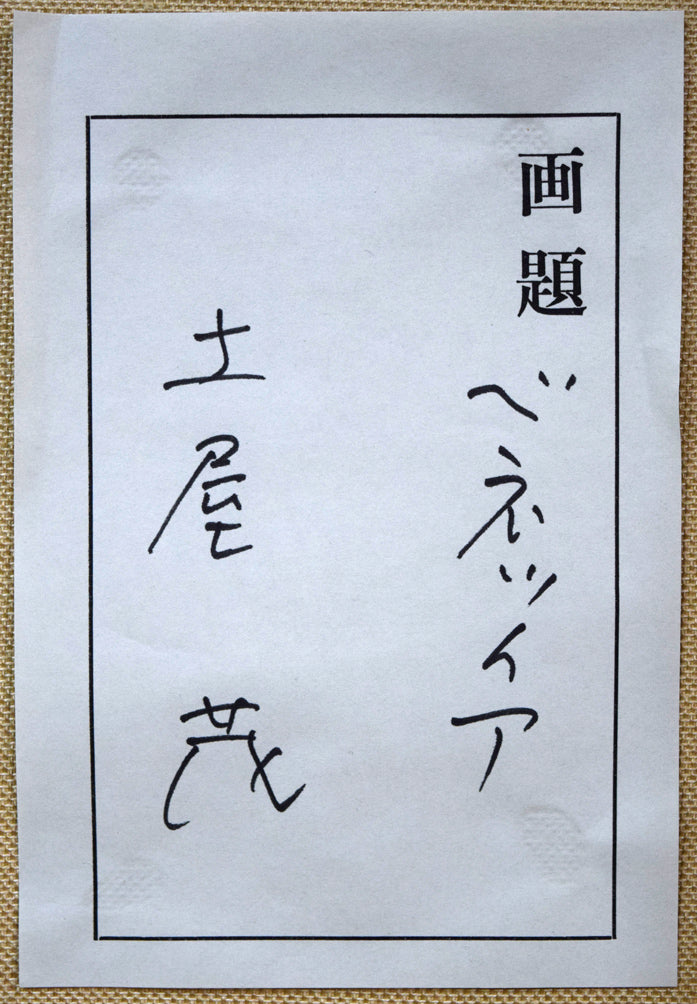 画題 ベネツィア
土屋 茂